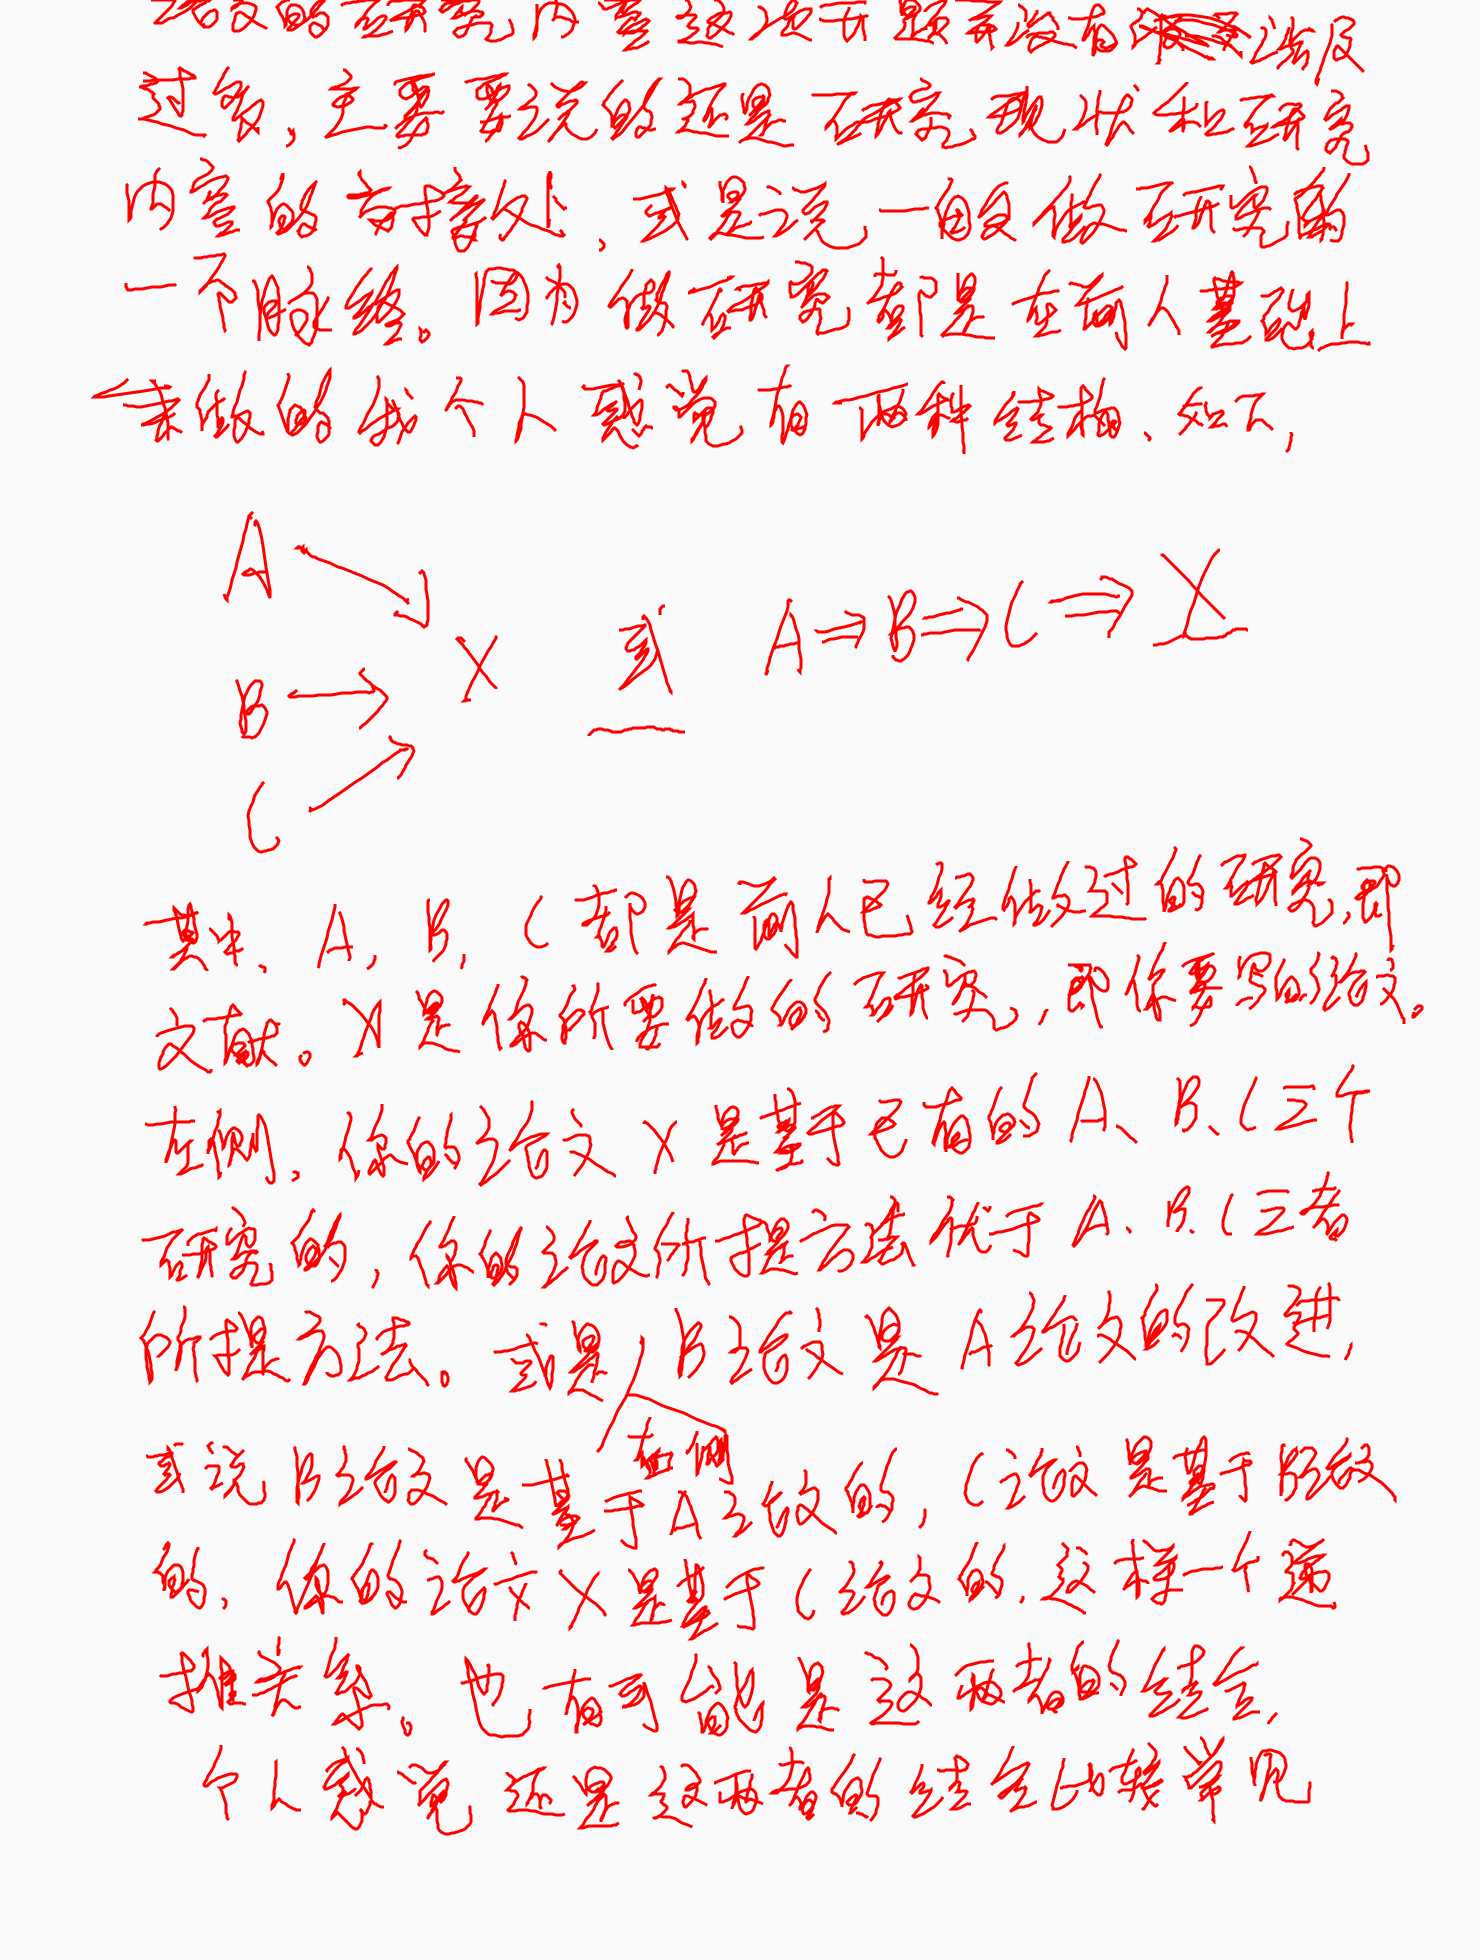 论文的研究内容这次开题并没有涉及
过多，主要要说的还是研究现状和研究
内容的衔接处，或是说，一般做研究的
一个脉络。因为做研究都是在前人基础上
来做的我个人感觉有两种结构、如下，
A
B X 或 A⇒B⇒C⇒X
C
其中、A、B、C都是前人已经做过的研究，即
文献。X是你所要做的研究，即你要写的论文。
左侧，你的论文X是基于已有的A、B、C三个
研究的，你的论文所提方法优于A、B、C三者
所提方法。或是，B论文是A论文的改进，
右侧
或说B论文是基于A论文的，C论文是基于B论文
的，你的论文X是基于C论文的，这样一个递
推关系。也有可能是这两者的结合，
个人感觉还是这两者的结合比较常见